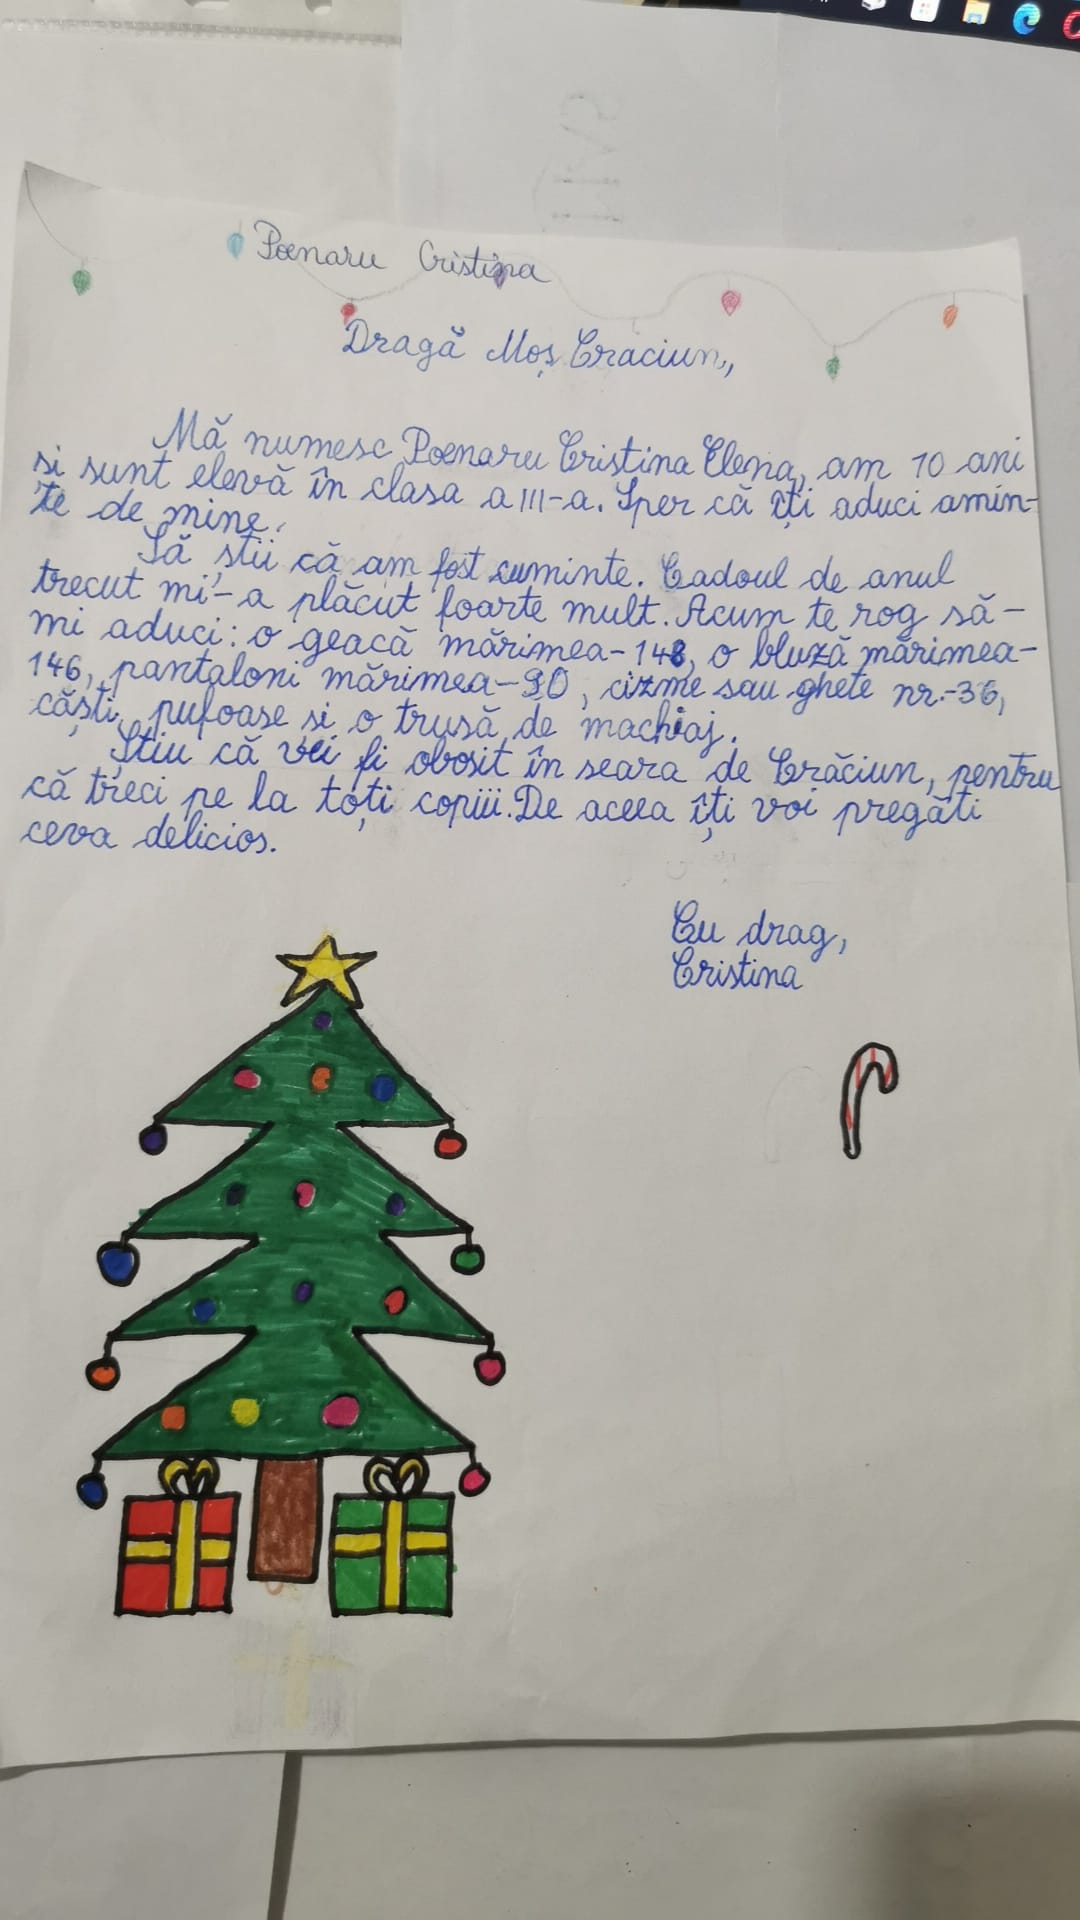 Poenaru Cristina
Dragă Moș Crăciun,
Mă numesc Poenaru Cristina Elena, am 10 ani
și sunt elevă în clasa a III-a. Sper că îți aduci amin-
te de mine.
Să știi că am fost cuminte. Cadoul de anul
trecut mi-a plăcut foarte mult. Acum te rog să-
mi aduci: o geacă mărimea-148, o bluză mărimea-
146, pantaloni mărimea-90, cizme sau ghete nr.-36,
căști pufoase și o trusă de machiaj.
Știu că vei fi obosit în seara de Crăciun, pentru
că treci pe la toți copiii. De aceea îți voi pregăti
ceva delicios.
Cu drag,
Cristina